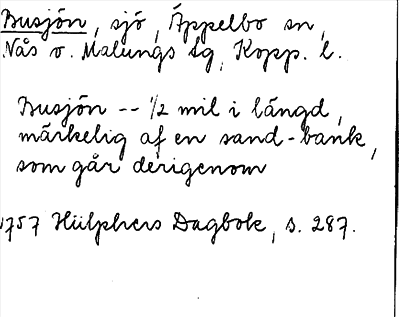 Busjön, sjö, Äppelbo sn,
Nås o. Malungs tg, Kopp. l.
Busjön -- 1/2 mil i längd,
märkelig af en sand-bank,
som går derigenom
1757 Hülphers Dagbok, s. 287.